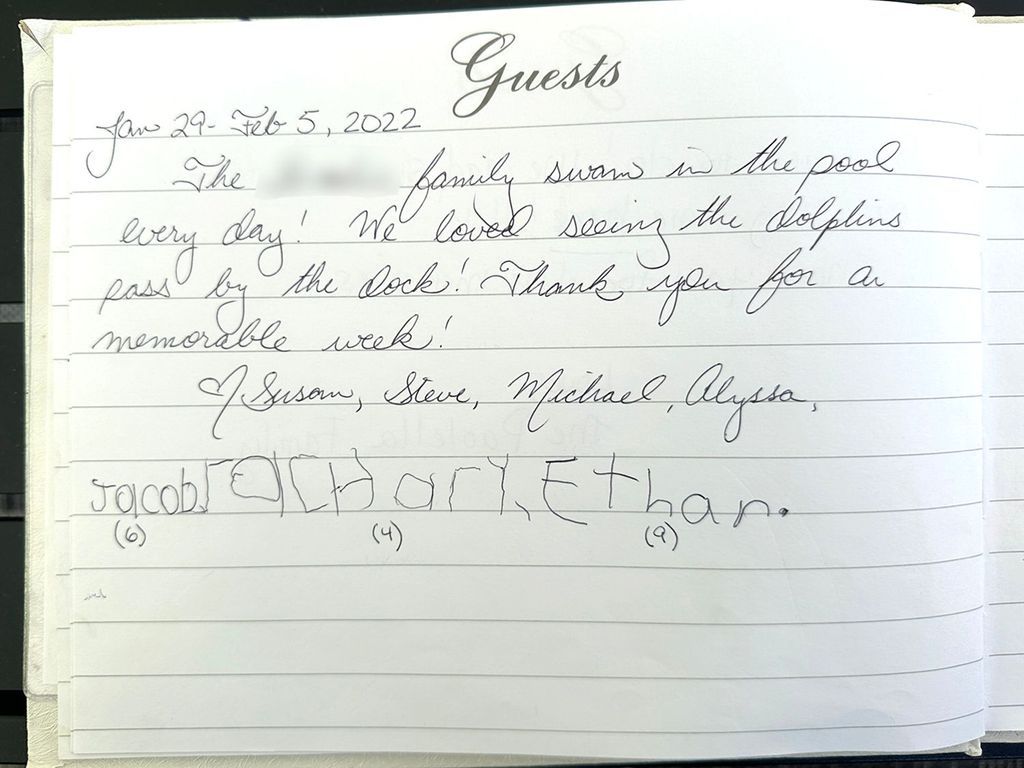 Guests
Jan 29 - Feb 5, 2022
The family swam in the pool
every day! We loved seeing the dolphins
pass by the dock! Thank you for a
memorable week!
♡ Susan, Steve, Michael, Alyssa,
Jacob, ZaCHary, Ethan.
(6) (4) (9)